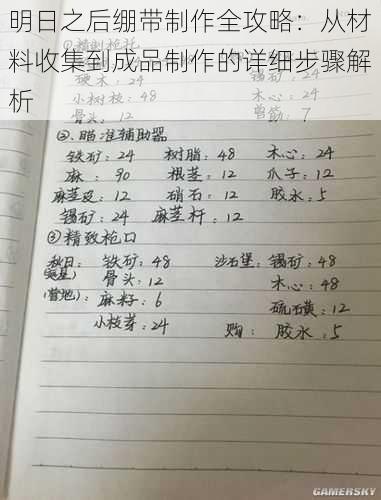 明日之后绷带制作全攻略：从材
料收集到成品制作的详细步骤解
析
①精制枪托
硬木：24 锡矿：24
小树枝：48 木心：24
骨头：12 兽筋：7
②瞄准辅助器
铁矿：24 树脂：48 木心：24
麻：90 根茎：12 爪子：12
麻茎皮：12 硝石：12 胶水：5
锡矿：24 麻茎杆：12
③精致枪口
秋日：铁矿：48 沙石堡：锡矿：48
骨头：12 木心：48
(营地)：麻籽：6 硫磺：12
小枝芽：24 购：胶水：5
GAMERSKY